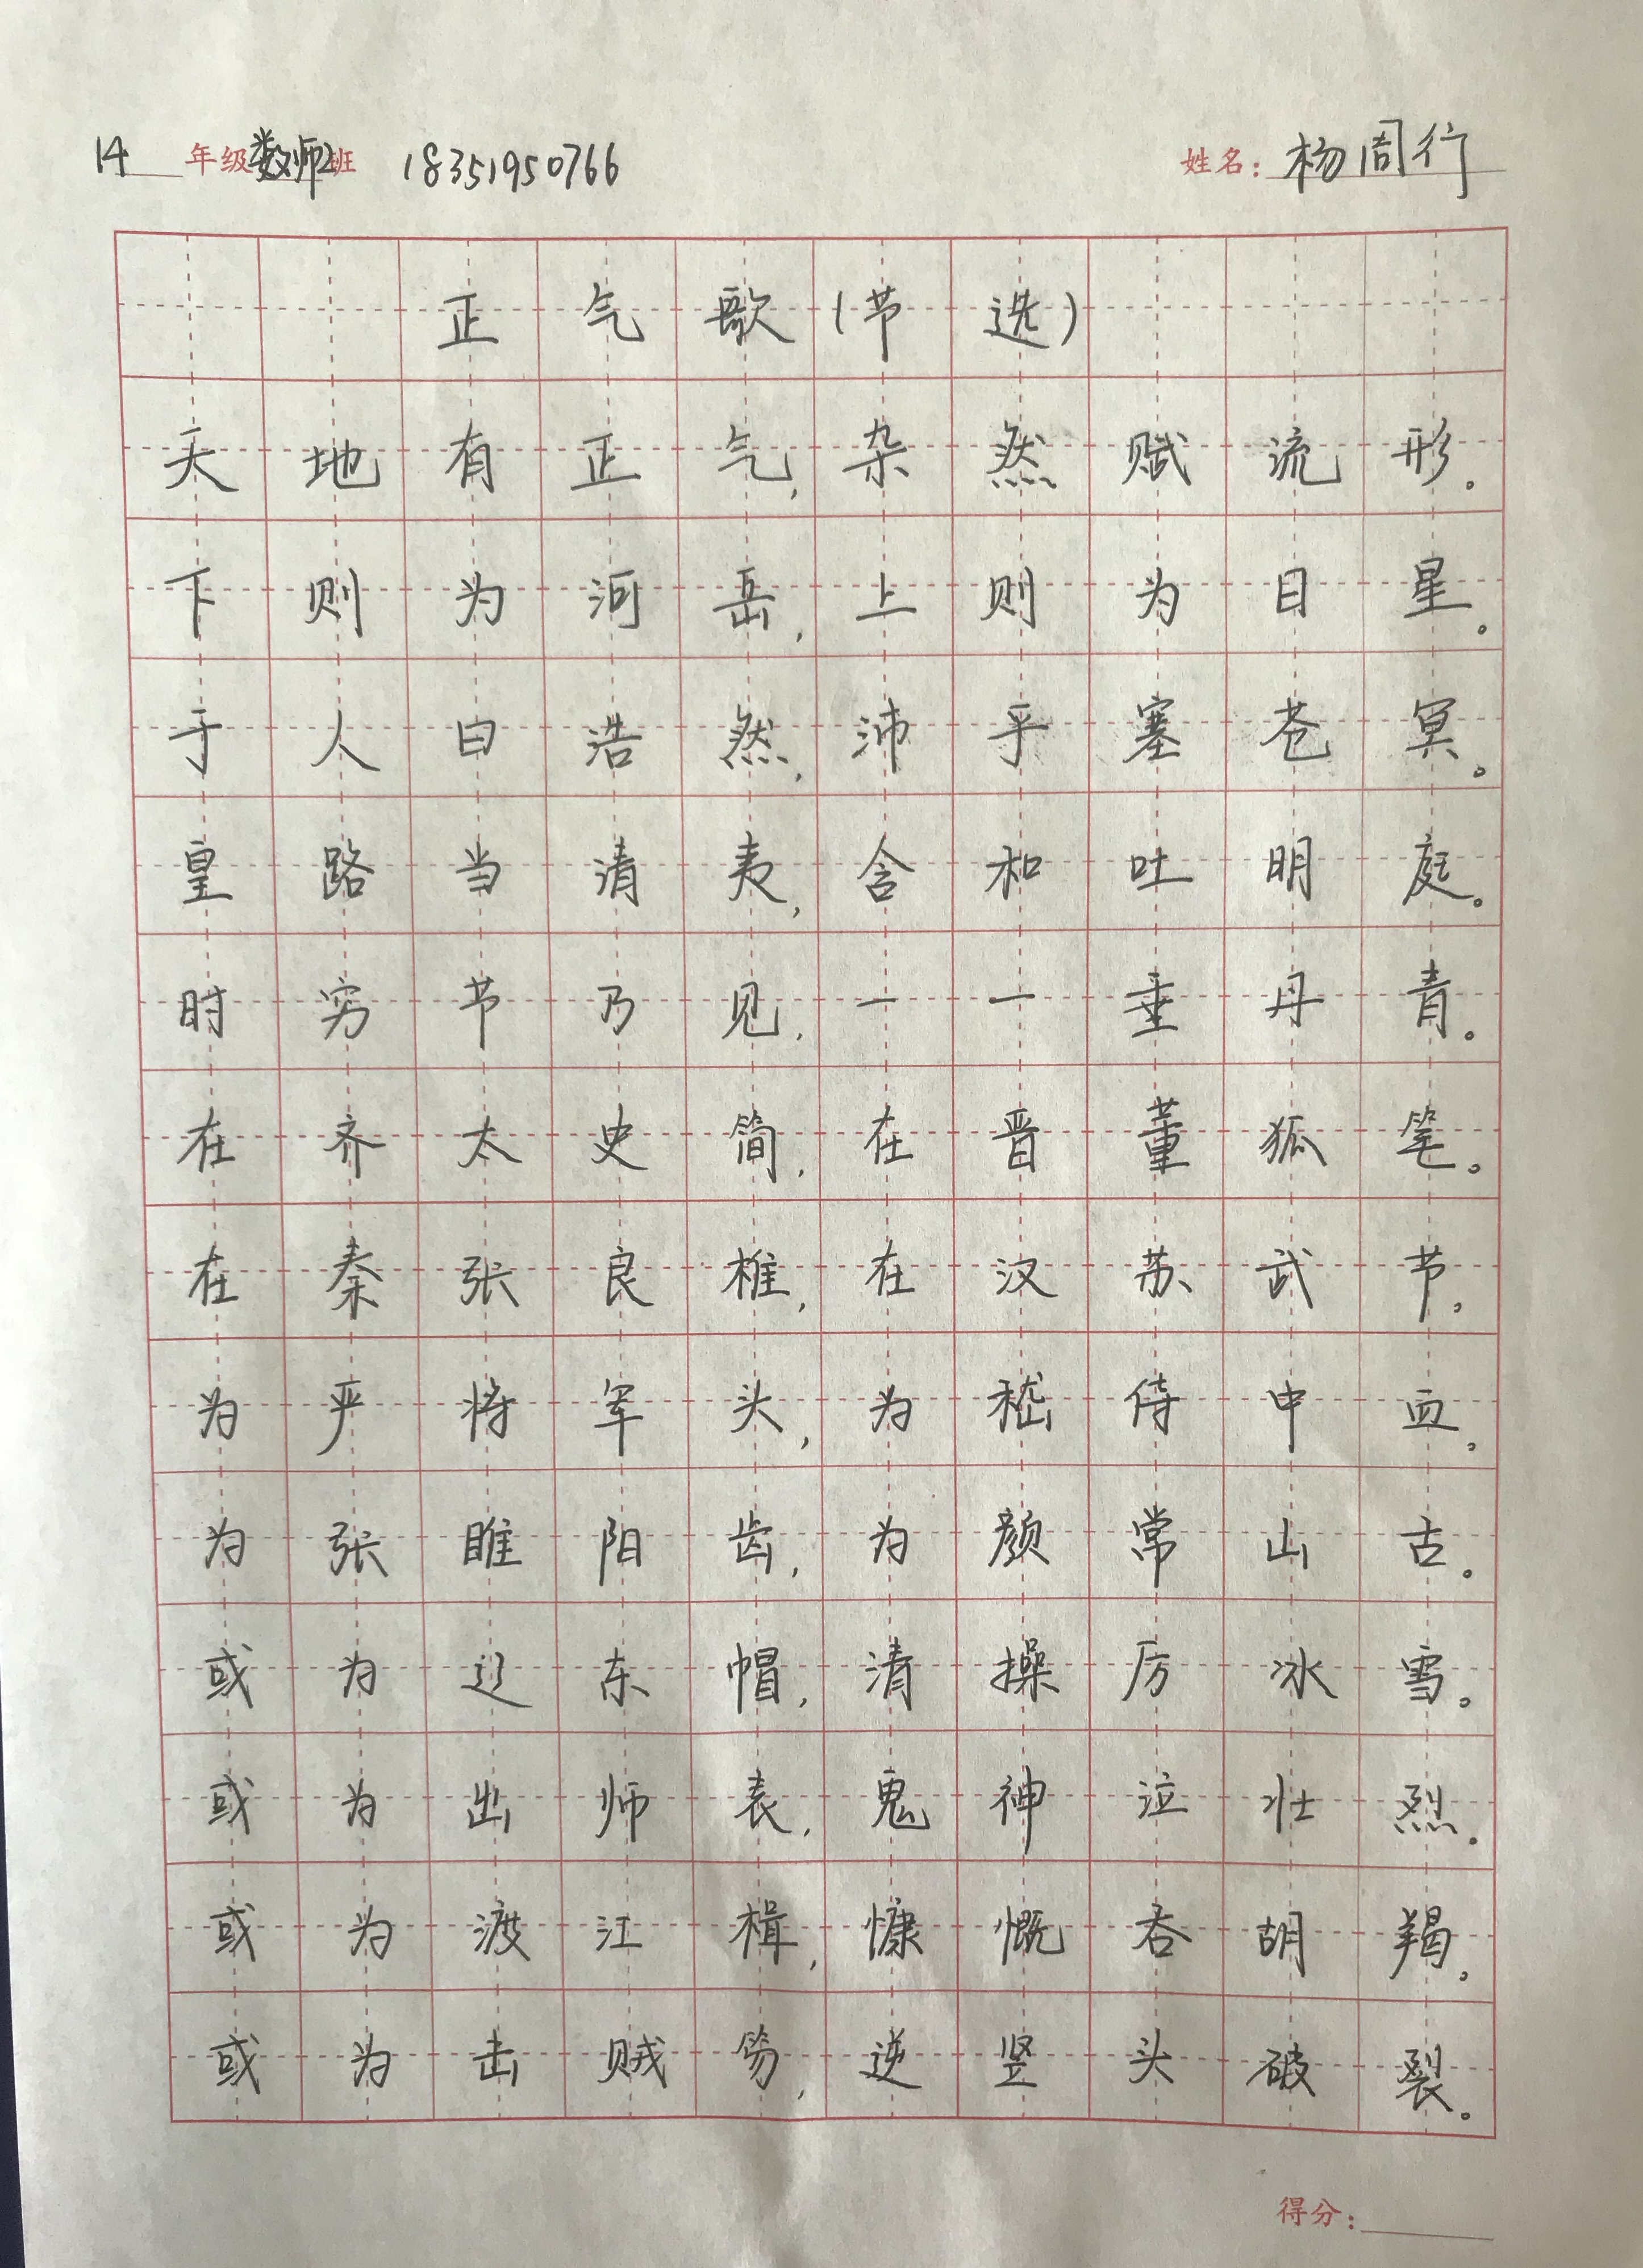 14 年级数师2班 18351950766 姓名：杨周行
正气歌（节选）
天地有正气，杂然赋流形。
下则为河岳，上则为日星。
于人曰浩然，沛乎塞苍冥。
皇路当清夷，含和吐明庭。
时穷节乃见，一一垂丹青。
在齐太史简，在晋董狐笔。
在秦张良椎，在汉苏武节，
为严将军头，为嵇侍中血，
为张睢阳齿，为颜常山古。
或为辽东帽，清操厉冰雪。
或为出师表，鬼神泣壮烈．
或为渡江楫，慷慨吞胡羯，
或为击贼笏，逆竖头破裂。
得分：